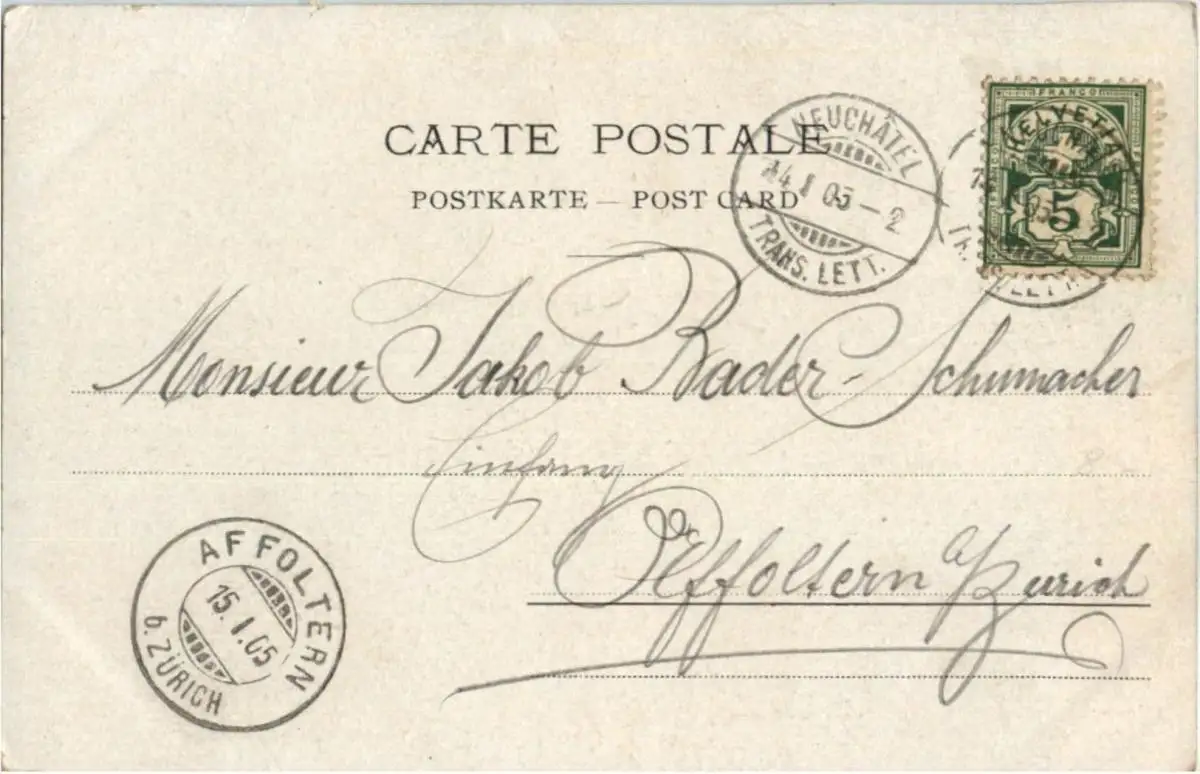 CARTE POSTALE
POSTKARTE — POST CARD
NEUCHÂTEL
14 I 05 – 2
TRANS. LETT.
FRANCO
HELVETIA
5
Monsieur Jakob Bader-Schumacher
Einfang
Affoltern a/Zürich
AFFOLTERN
15.I.05
b. ZÜRICH